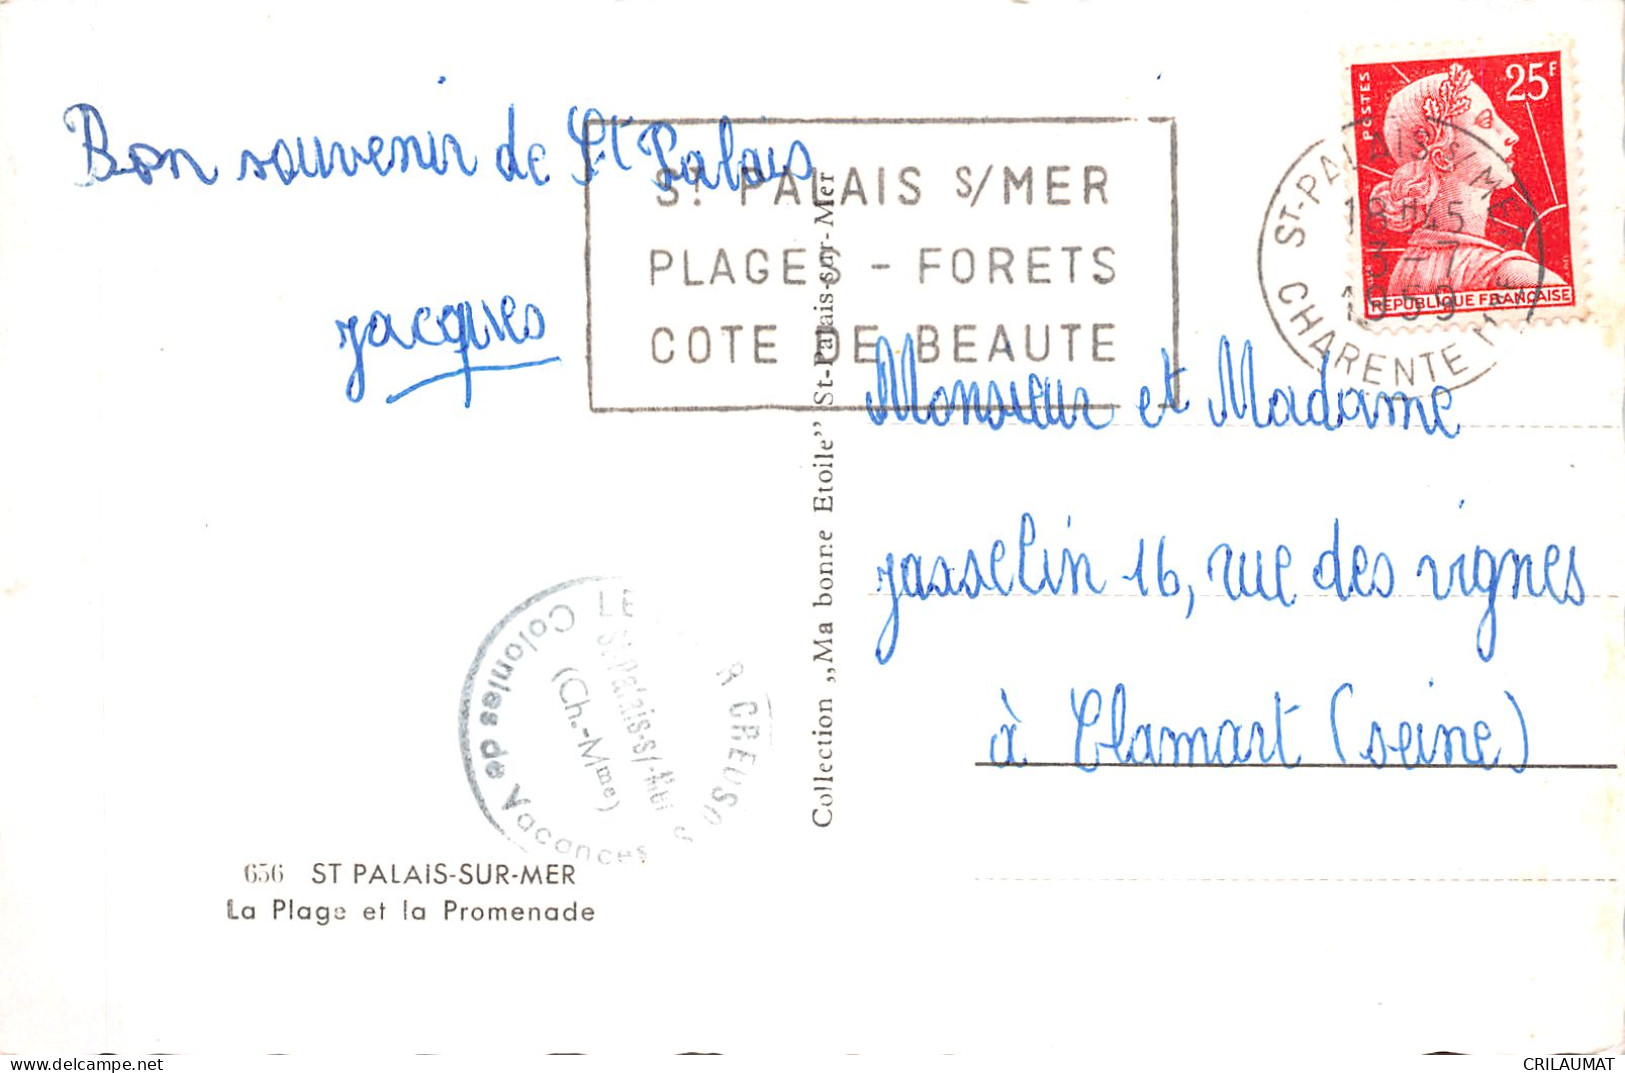 Bon souvenir de St Palais
Jacques
ST PALAIS S/MER
PLAGES - FORETS
COTE DE BEAUTE
POSTES
25F
REPUBLIQUE FRANÇAISE
ST-PALAIS S/ MER
18H45
3-7
1959
CHARENTE MME
Monsieur et Madame
Jasselin 16, rue des vignes
à Clamart (seine)
Collection „Ma bonne Etoile” St-Palais-sur-Mer
Colonies de Vacances
St Palais-s/-Mer
(Ch.-Mme)
656 ST PALAIS-SUR-MER
La Plage et la Promenade
delcampe.net
CRILAUMAT